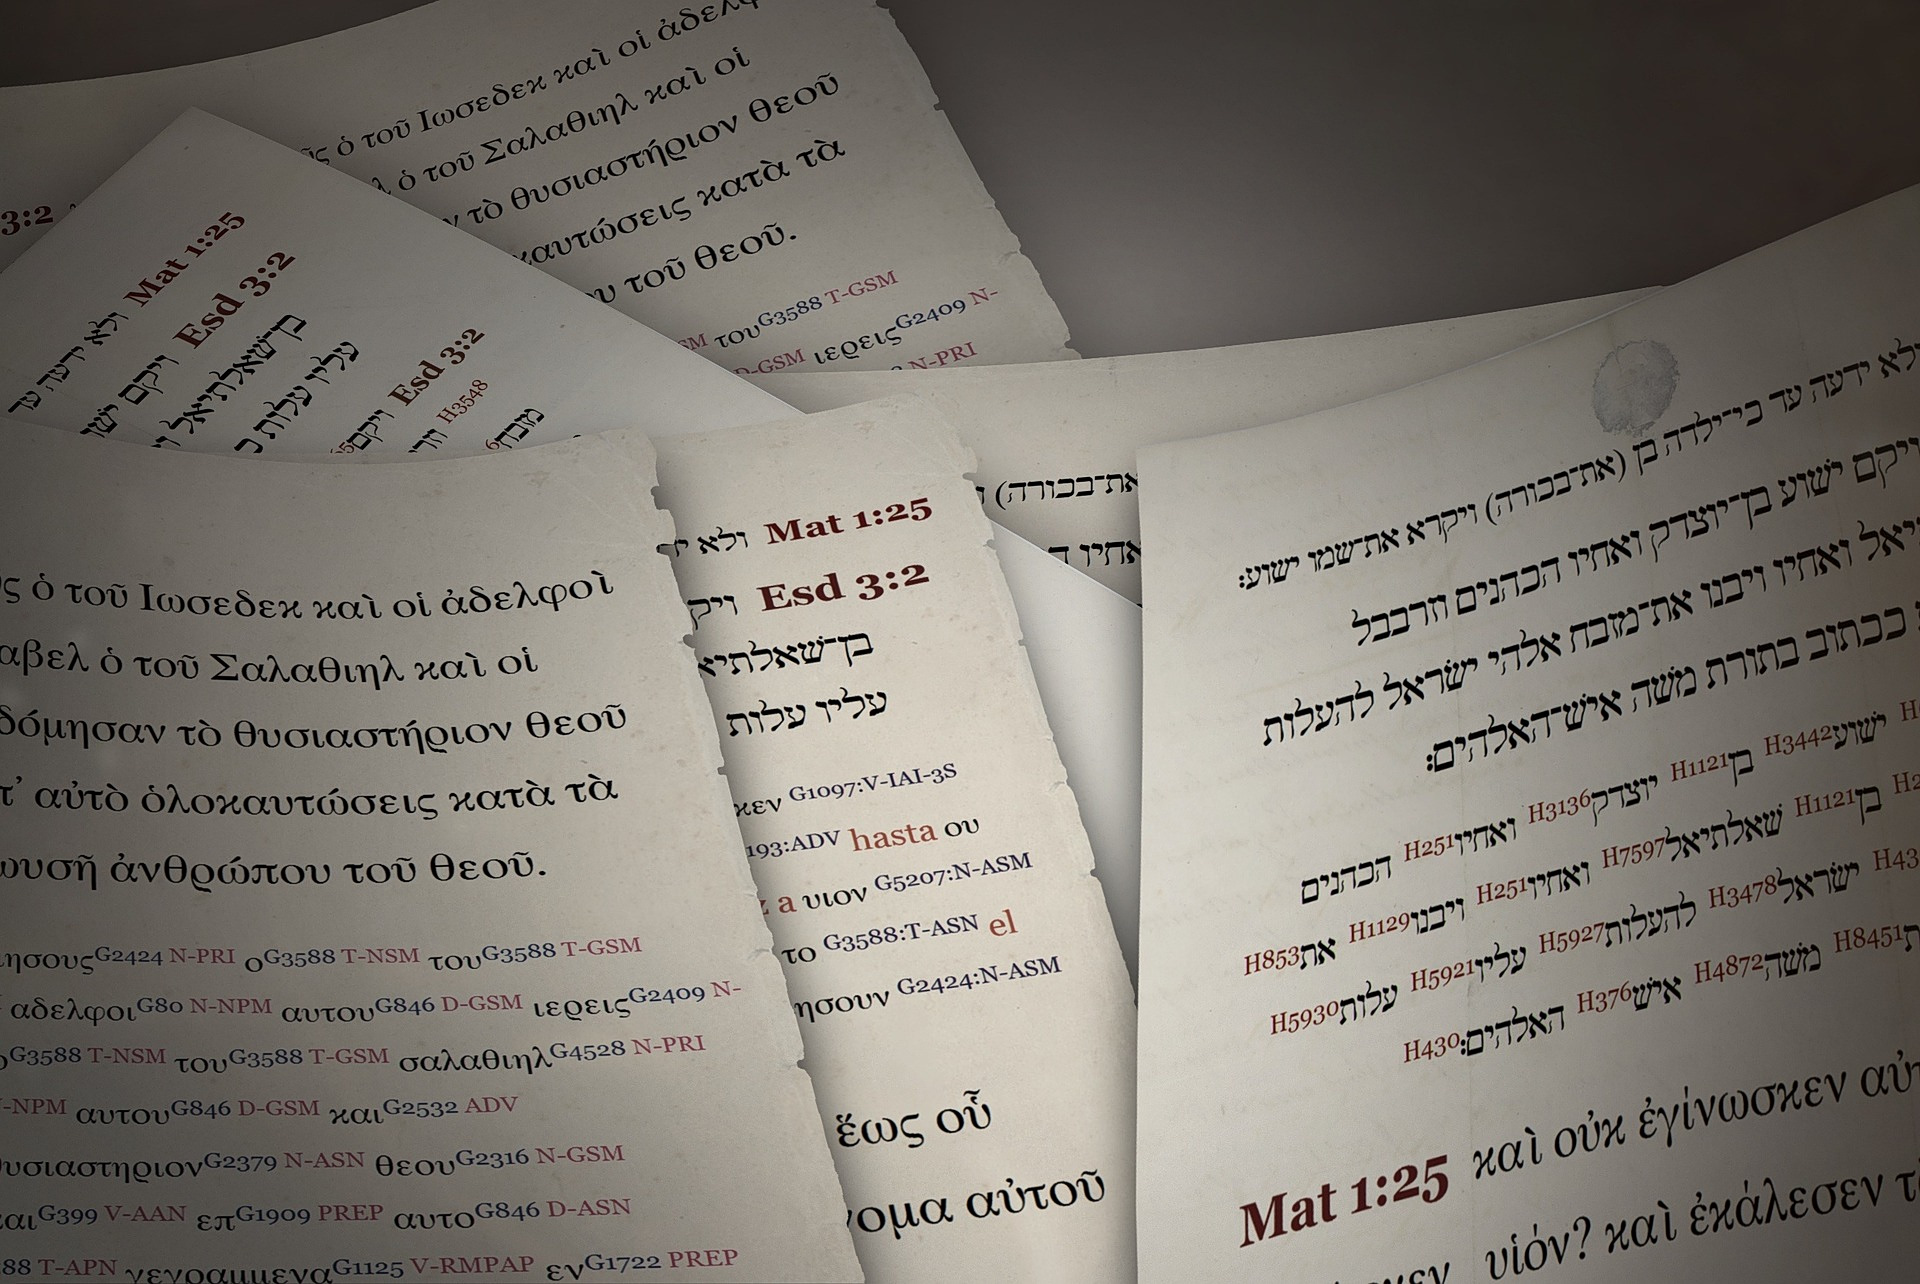 ὁ τοῦ Ιωσεδεκ καὶ οἱ
ὁ τοῦ Σαλαθιηλ καὶ οἱ
τὸ θυσιαστήριον θεοῦ
κατὰ τὰ
τοῦ θεοῦ.
τουG3588 T-GSM
D-GSM ιερειςG2409 N-
N-PRI
3:2
Mat 1:25 ולא ידעה עד
Esd 3:2 ויקם
בן־שאלתיאל
עליו עלות
Esd 3:2 ויקם
H3548
מזבח
ὁ τοῦ Ιωσεδεκ καὶ οἱ ἀδελφοὶ
ὁ τοῦ Σαλαθιηλ καὶ οἱ
τὸ θυσιαστήριον θεοῦ
αὐτὸ ὁλοκαυτώσεις κατὰ τὰ
ἀνθρώπου τοῦ θεοῦ.
G2424 N-PRI οG3588 T-NSM τουG3588 T-GSM
αδελφοιG80 N-NPM αυτουG846 D-GSM ιερειςG2409 N-
G3588 T-NSM τουG3588 T-GSM σαλαθιηλG4528 N-PRI
N-NPM αυτουG846 D-GSM καιG2532 ADV
G2379 N-ASN θεουG2316 N-GSM
G399 V-AAN επG1909 PREP αυτοG846 D-ASN
T-APN γεγραμμεναG1125 V-RMPAP ενG1722 PREP
Mat 1:25 ולא
Esd 3:2
בן־שאלתיא
עליו עלות
G1097:V-IAI-3S
193:ADV hasta ου
a υιον G5207:N-ASM
το G3588:T-ASN el
G2424:N-ASM
ἕως οὗ
αὐτοῦ
את־בכורה)
אחיו
ולא ידעה עד כי־ילדה בן (את־בכורה) ויקרא את־שמו ישוע:
ויקם ישוע בן־יוצדק ואחיו הכהנים וזרבבל
ואחיו ויבנו את־מזבח אלהי ישראל להעלות
ככתוב בתורת משה איש־האלהים:
ישועH3442 בןH1121 יוצדקH3136 ואחיוH251 הכהנים
בןH1121 שאלתיאלH7597 ואחיוH251 ויבנוH1129 אתH853
ישראלH3478 להעלותH5927 עליוH5921 עלותH5930
H8451 משהH4872 אישH376 האלהים:H430
Mat 1:25 καὶ οὐκ ἐγίνωσκεν
υἱόν? καὶ ἐκάλεσεν